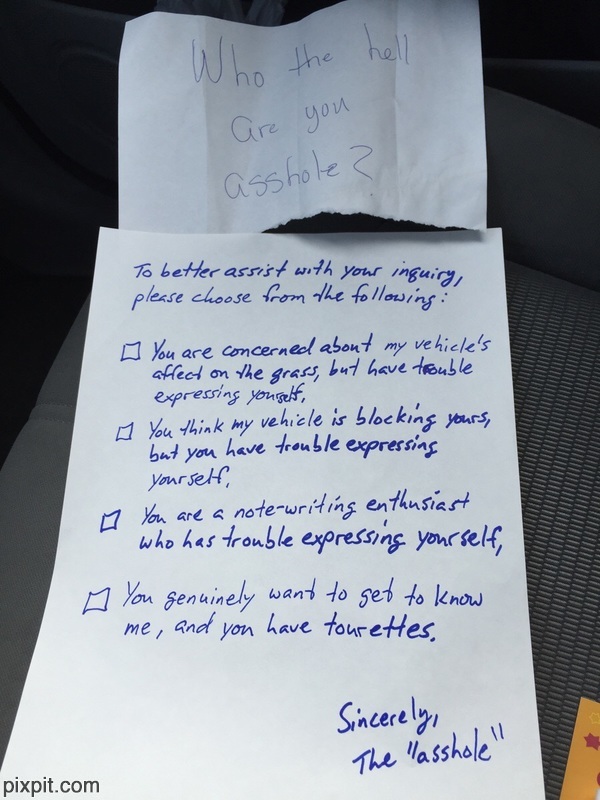 Who the hell
are you
asshole?
To better assist with your inquiry,
please choose from the following:
You are concerned about my vehicle's
affect on the grass, but have trouble
expressing yourself.
You think my vehicle is blocking yours,
but you have trouble expressing
yourself.
You are a note-writing enthusiast
who has trouble expressing yourself,
You genuinely want to get to know
me, and you have tourettes.
Sincerely,
The "asshole"
pixpit.com